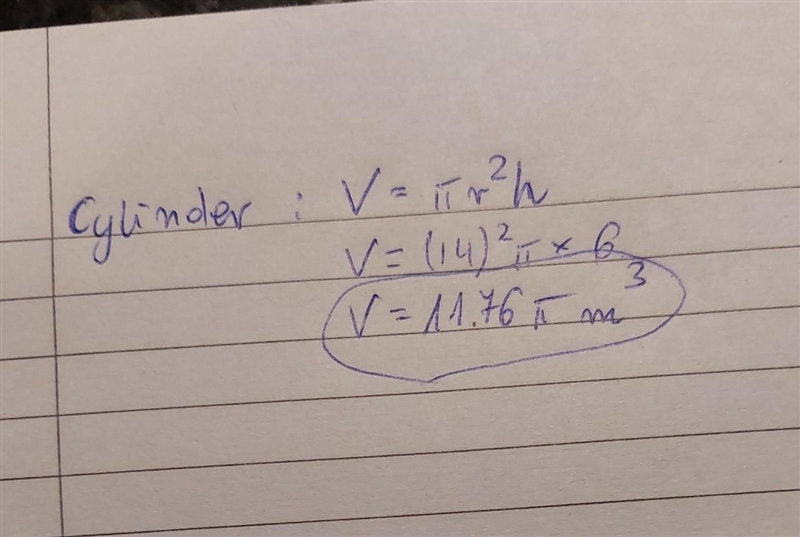 Cylinder : V = πr²h
V = (14)²π × 6
V = 11.76 π m³